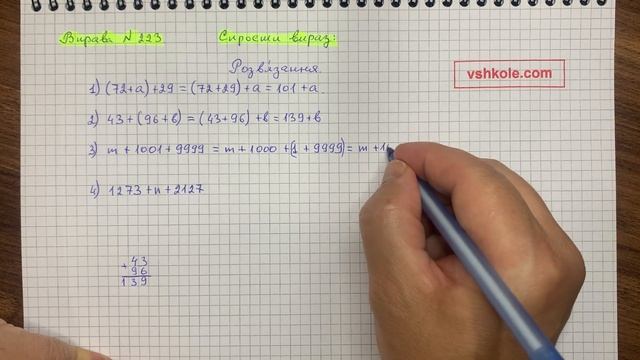 Вправа № 223 Спрости вираз:
Розв'язання.
vshkole.com
1) (72+a)+29 = (72+29)+a = 101 + a.
2) 43+(96+в)=(43+96)+в=139+в
3) m + 1001 + 9999 = m + 1000 + (1 + 9999) = m + 1
4) 1273+n+2127
+43
96
139